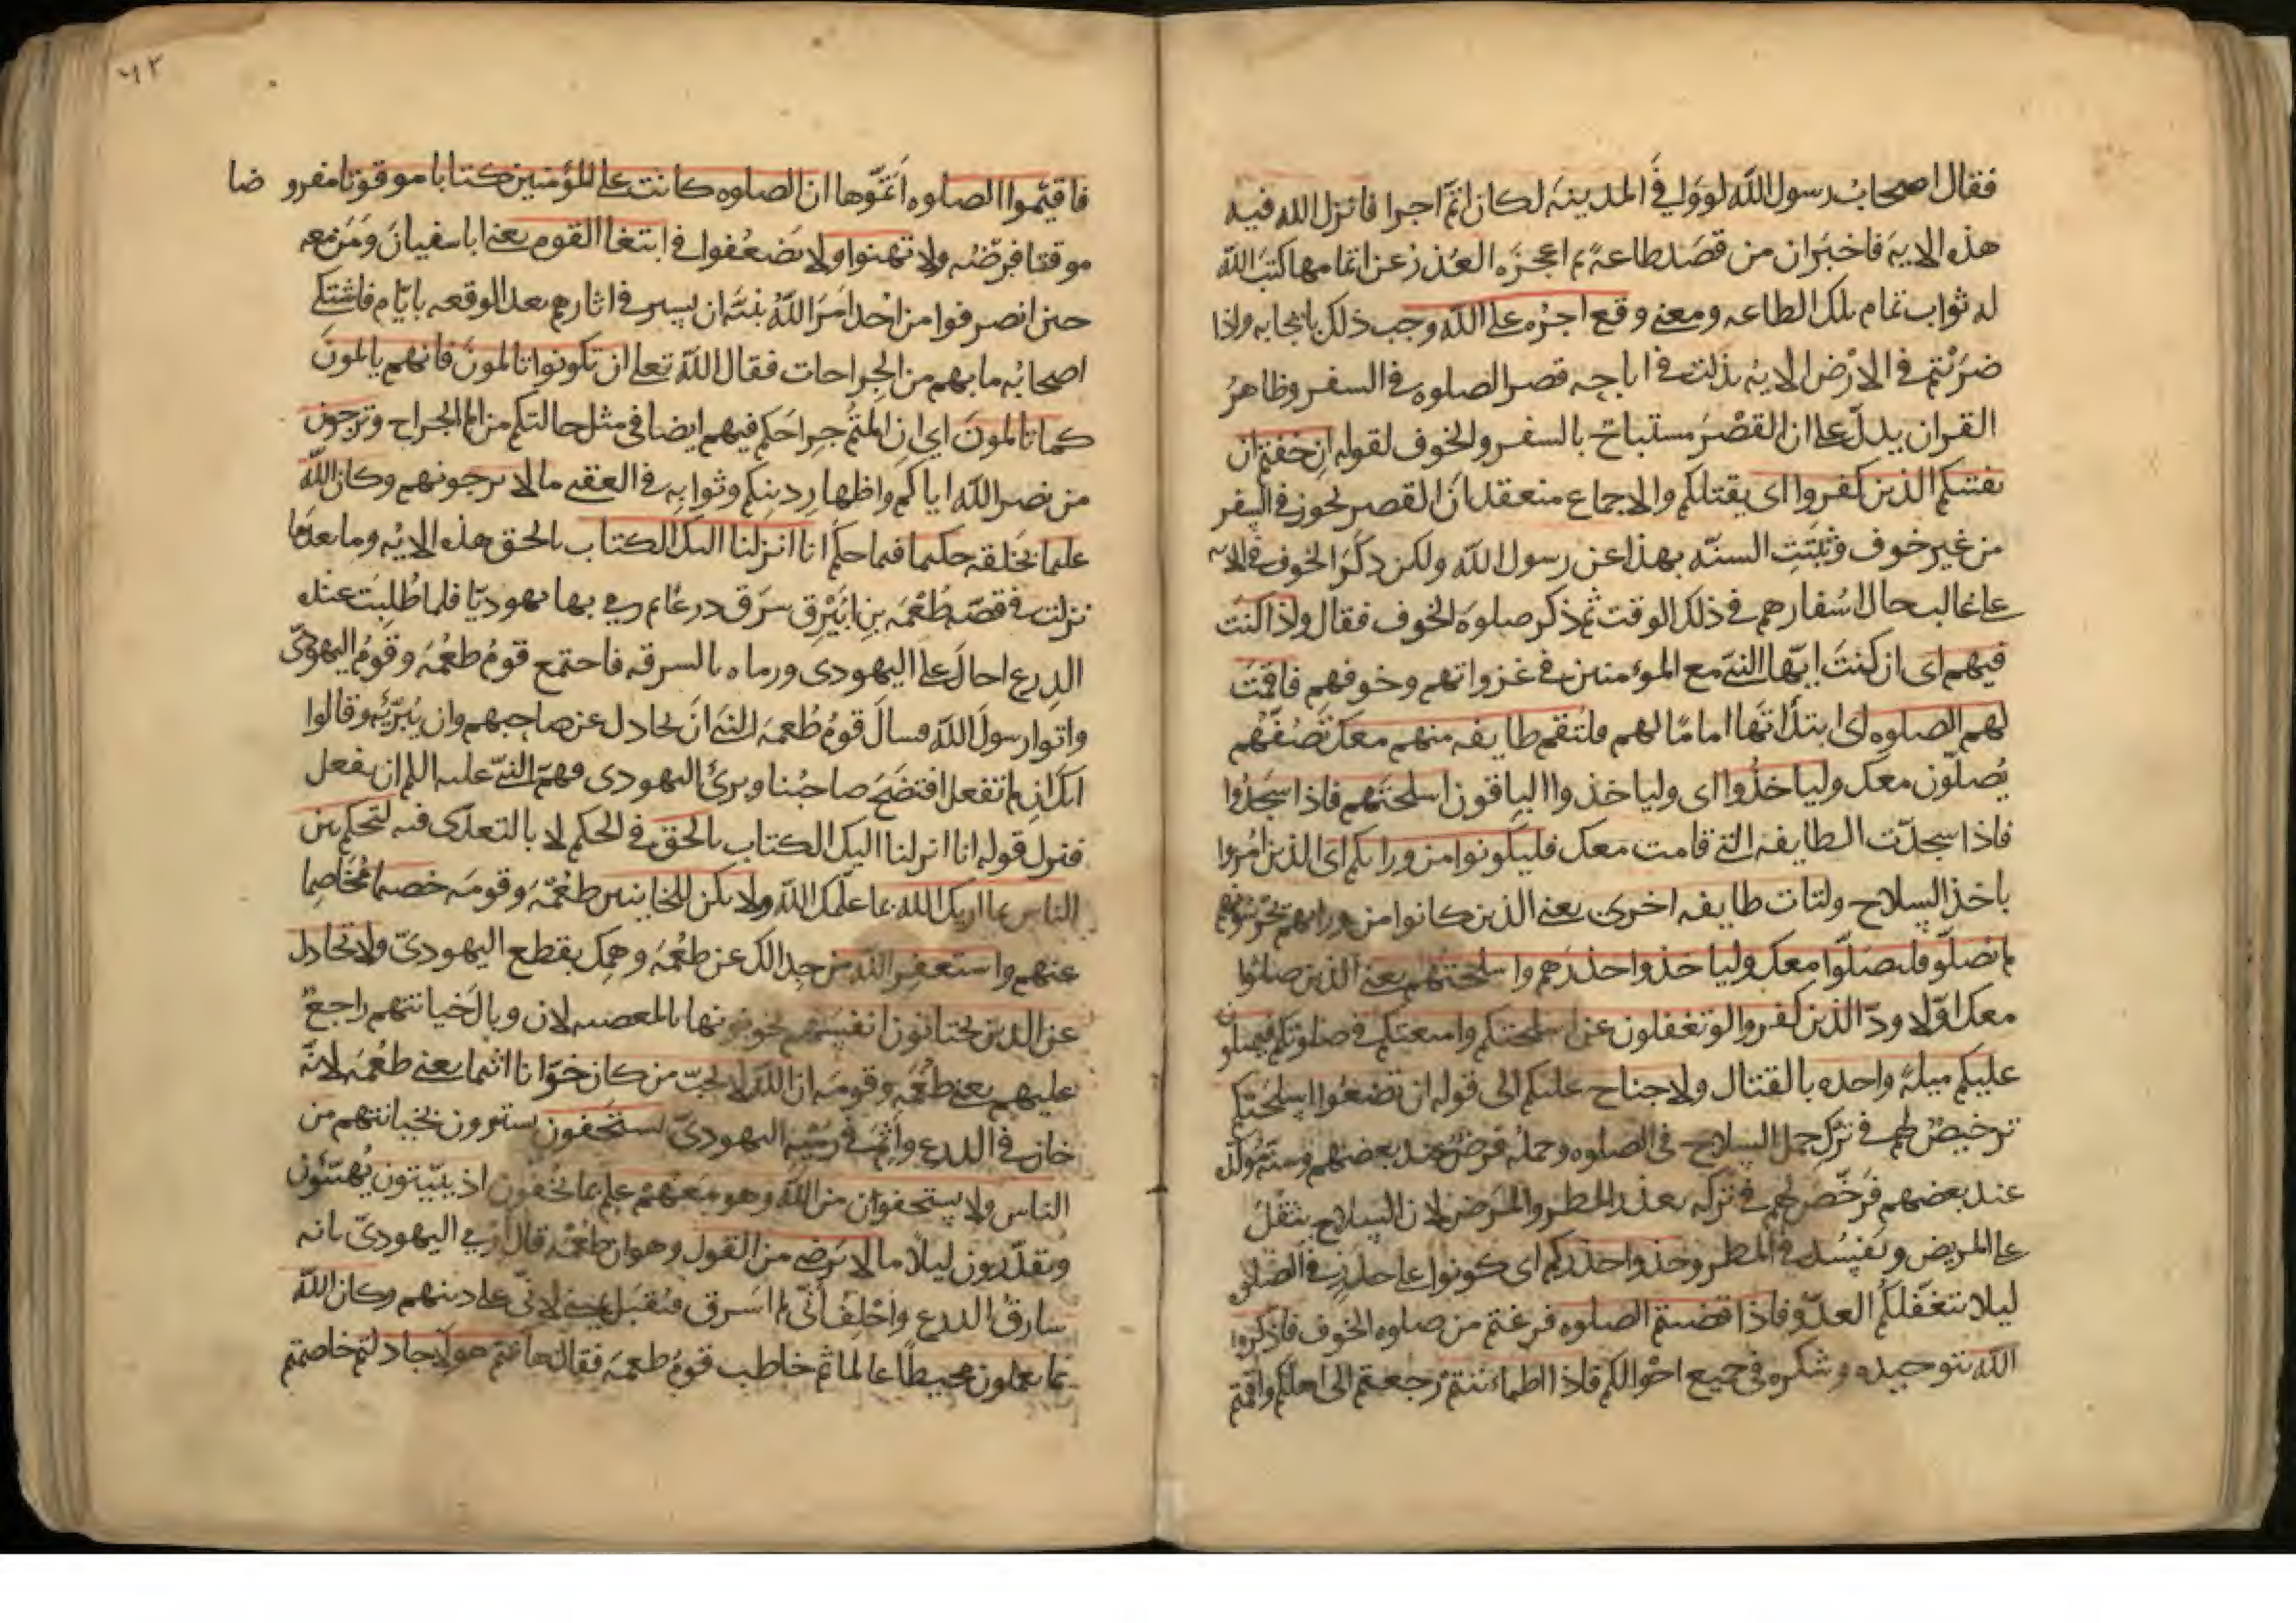 فقال اصحاب رسول الله لو وافى المدينه لكان اتمّ اجرا فانزل الله فيه
هذه الايه فاخبر ان من قصد طاعة ثم اعجزه العذر عن اتمامها كتب الله
له ثواب تمام تلك الطاعه ومعنى وقع اجره على الله وجب ذلك بايجابه واذا
ضربتم في الارض الايه نزلت في اباحه قصر الصلوه في السفر وظاهر
القران يدلّ على ان القصر مستباح بالسفر والخوف لقوله ان خفتم ان
يفتنكم الذين كفروا اى يقتلكم والاجماع منعقد ان القصر يجوز في السفر
من غير خوف وثبتت السنّه بهذا عن رسول الله ولكن ذكر الخوف في الايه
على غالب حال اسفارهم في ذلك الوقت ثم ذكر صلوه الخوف فقال واذا كنت
فيهم اى ان كنت ايّها النبي مع المومنين في غزواتهم وخوفهم فاقمت
لهم الصلوه اى ابتداتها اماما لهم فلتقم طايفه منهم معك نصفهم
يصلّون معك ولياخذوا اى ولياخذوا الباقون اسلحتهم فاذا سجدوا
فاذا سجدت الطايفه التي قامت معك فليكونوا من ورايكم اى الذين امروا
باخذ السلاح ولتات طايفه اخرى يعني الذين كانوا من ورايهم يحرسونهم
لم يصلّوا فليصلّوا معك ولياخذوا حذرهم واسلحتهم يعني الذين صلوا
معك اوّلا ودّ الذين كفروا لو تغفلون عن اسلحتكم وامتعتكم في صلوتكم فيميلون
عليكم ميلة واحده بالقتال ولا جناح عليكم الى قوله ان تضعوا اسلحتكم
ترخيص لهم في ترك حمل السلاح في الصلوه وحمله فرض عند بعضهم وسنّه موكّده
عند بعضهم فرخّص لهم في تركه بعذر المطر والمرض لان السلاح يثقل
على المريض ويفسد في المطر وخذوا حذركم اى كونوا على حذر في الصلوه
ليلا يتغفّلكم العدوّ فاذا قضيتم الصلوه فرغتم من صلوه الخوف فاذكروا
الله بتوحيده وشكره في جميع احوالكم فاذا اطماننتم رجعتم الى اهلكم واقمتم
٦٢
فاقيموا الصلوه اتمّوها ان الصلوه كانت على المؤمنين كتابا موقوتا مفروضا
موقتا فرضه ولا تهنوا ولا تضعفوا في ابتغا القوم يعني ابا سفيان ومن معه
حين انصرفوا من احد امر الله نبيّه ان يسير في اثارهم بعد الوقعه بايّام فاشتكى
اصحابه ما بهم من الجراحات فقال الله تعلى ان تكونوا تالمون فانهم يالمون
كما تالمون اي ان المتم جراحكم فهم ايضا في مثل حالتكم من الم الجراح وترجون
من نصر الله اياكم واظهار دينكم وثوابه في العقبى ما لا يرجونهم وكان الله
عليما بخلقه حكيما فيما حكم انا انزلنا اليك الكتاب بالحق هذه الايه وما بعدها
نزلت في قصّه طعمه بن ابيرق سرق درعا ثم رمى بها يهوديّا فلما طلبت عنده
الدرع احال على اليهودى ورماه بالسرقه فاجتمع قوم طعمه وقوم اليهودىّ
واتوا رسول الله فسال قوم طعمه النبي ان يجادل عن صاحبهم وان يبرّئه وقالوا
انك ان لم تفعل افتضح صاحبنا وبرئ اليهودى فهمّ النبيّ عليه السلم ان يفعل
فنزل قوله انا انزلنا اليك الكتاب بالحق في الحكم لا بالتعدّى فيه لتحكم بين
الناس بما اريك الله بما علّمك الله ولا تكن للخاينين طعمه وقومه خصيما مخاصما
عنهم واستغفر الله من جدالك عن طعمه وهمك بقطع اليهودىّ ولا تجادل
عن الذين يختانون انفسهم يخونونها بالمعصيه لان وبال خيانتهم راجع
عليهم يعني طعمه وقومه ان الله لا يحبّ من كان خوّانا اثيما يعني طعمه لانّه
خان في الدرع واثم في رميه اليهودىّ يستخفون يستترون بخيانتهم من
الناس ولا يستخفون من الله وهو معهم عليم بما يخفون اذ يبيّتون يهيّئون
ويقدّرون ليلا ما لا يرضى من القول وهو ان طعمه قال ارمي اليهودىّ بانه
سارق الدرع واحلف انّي لم اسرق فيقبل يميني لانّي على دينهم وكان الله
بما يعملون محيطا عالما ثم خاطب قوم طعمه فقال ها انتم هولا جادلتم خاصمتم